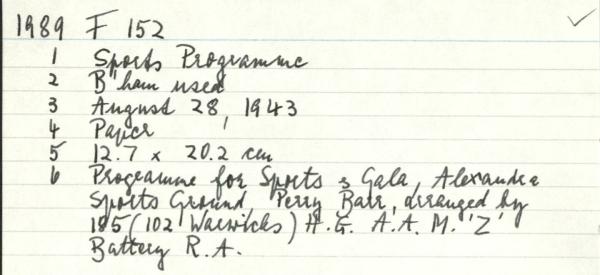 1989 F 152
1 Sports Programme
2 B'ham used
3 August 28, 1943
4 Paper
5 12.7 x 20.2 cm
6 Programme for Sports & Gala, Alexandra
Sports Ground, Perry Barr, arranged by
185 (102 Warwicks) H.G. A.A. M. 'Z'
Battery R.A.